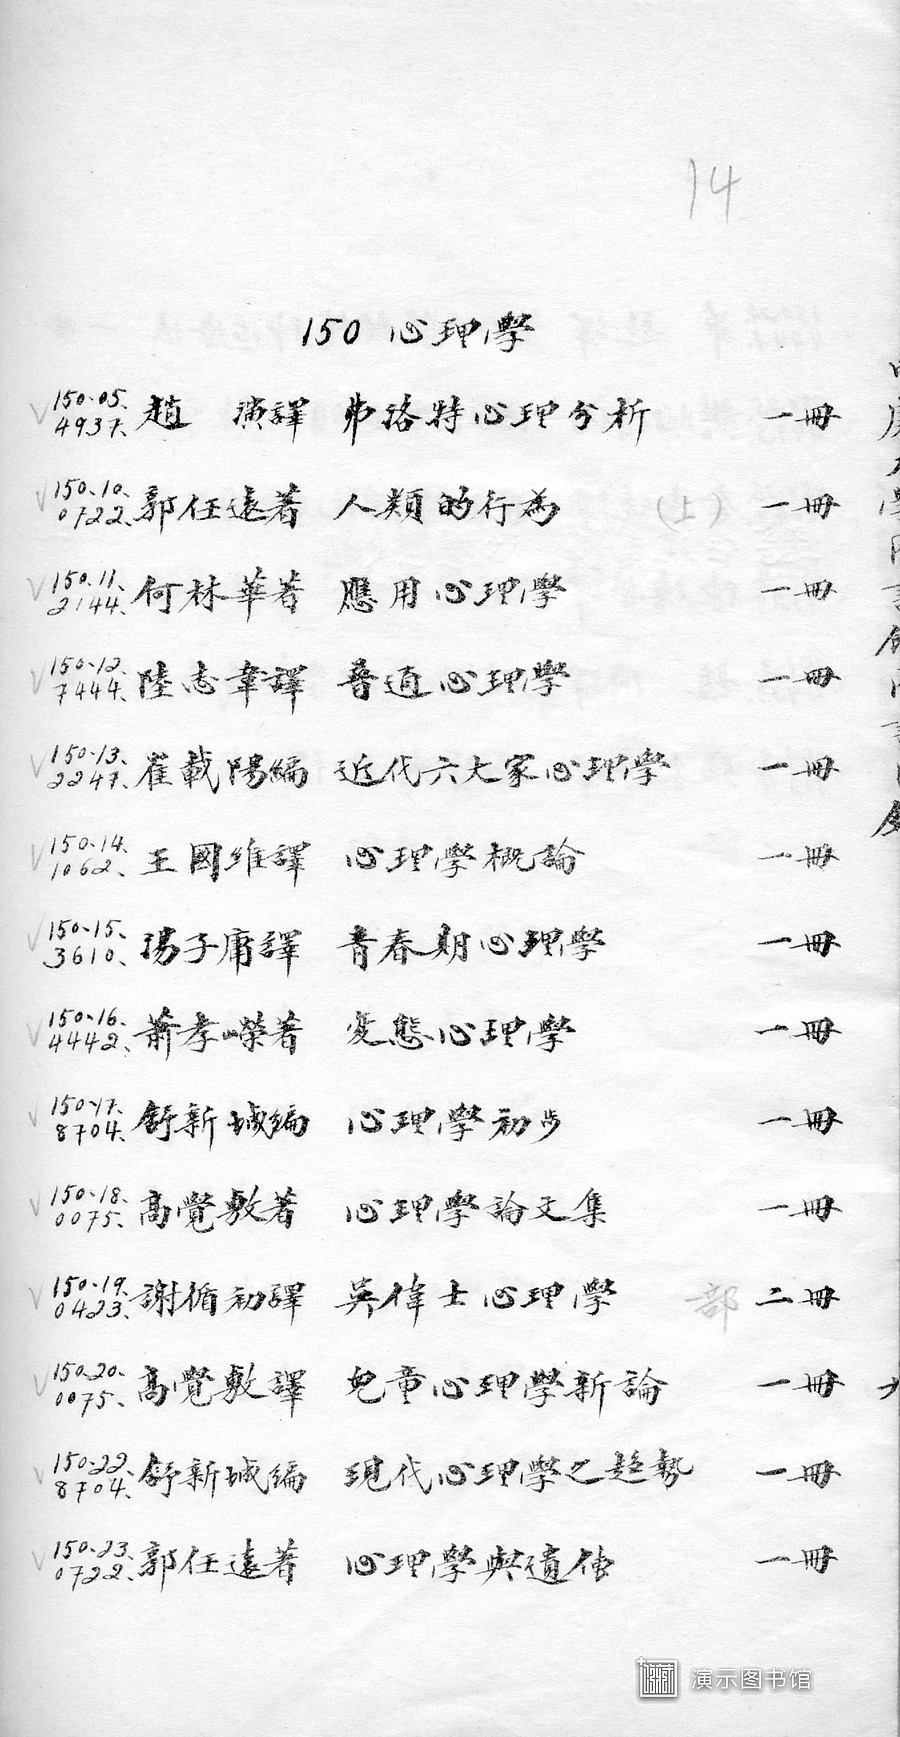 14
150 心理學
150.05. 4937. 趙 演譯 弗洛特心理分析 一冊
150.10. 0722. 郭任遠著 人類的行為 (上) 一冊
150.11. 2144. 何林華著 應用心理學 一冊
150.12. 7444. 陸志韋譯 普通心理學 一冊
150.13. 2247. 崔載陽編 近代六大家心理學 一冊
150.14. 1062. 王國維譯 心理學概論 一冊
150.15. 3610. 湯子庸譯 青春期心理學 一冊
150.16. 4442. 蕭孝嶸著 変態心理學 一冊
150.17. 8704. 舒新城編 心理學初步 一冊
150.18. 0075. 高覺敷著 心理學論文集 一冊
150.19. 0423. 謝循初譯 吳偉士心理學 部 二冊
150.20. 0075. 高覺敷譯 兒童心理學新論 一冊
150.22. 8704. 舒新城編 現代心理學之趋勢 一冊
150.23. 0722. 郭任遠著 心理學與遺傳 一冊
演示图书馆